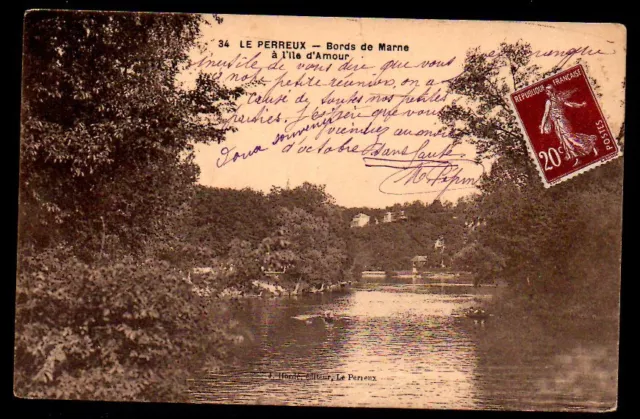 34 LE PERREUX — Bords de Marne
à l'Ile d'Amour
inutile de vous dire que vous manquez
à notre petite réunion, on a
cause de toutes nos petites
J'espère que vous
viendrez au mois
d'octobre, sans faute
Doux souvenir
M. Pépin
REPUBLIQUE FRANÇAISE
POSTES
20c
éditeur, Le Perreux